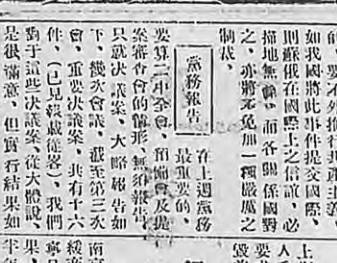 的，要不外推行共產主義，
如我國將此事件提交國際、
則蘇俄在國際上之信誼，必
掃地無餘，而各關係國對
之，亦將不免加一種嚴厲之
制裁。
黨務報告
在上週黨務
最重要的、
要算二中全會，預備會及提
案審查會的情形、無須報告、
只就決議案、大略報告如
下、幾次會議，截至第三次
會，重要決議案，共有十六
件、（已見載從畧）、我們
對于這些決議案、從大體說、
是很滿意，但實行結果如
上
人
要
毀
南
緩
寧
果，
半年